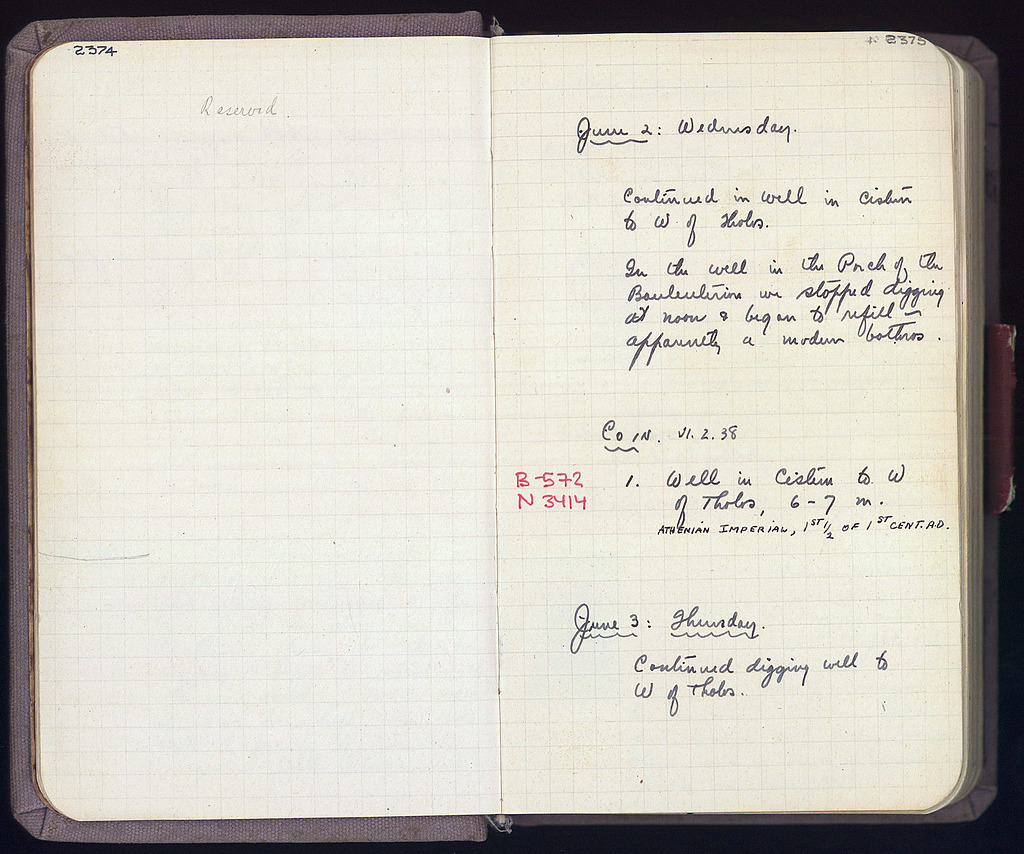 2374
Reserved.
2375
June 2: Wednesday.
Continued in well in cistern
to W of Tholos.
In the well in the Porch of the
Bouleuterion we stopped digging
at noon & began to refill –
apparently a modern bothros.
Coin. VI.2.38
B-572
N 3414
1. Well in Cistern to W
of Tholos, 6-7 m.
ATHENIAN IMPERIAL, 1ST 1/2 OF 1ST CENT. A.D.
June 3: Thursday.
Continued digging well to
W of Tholos.